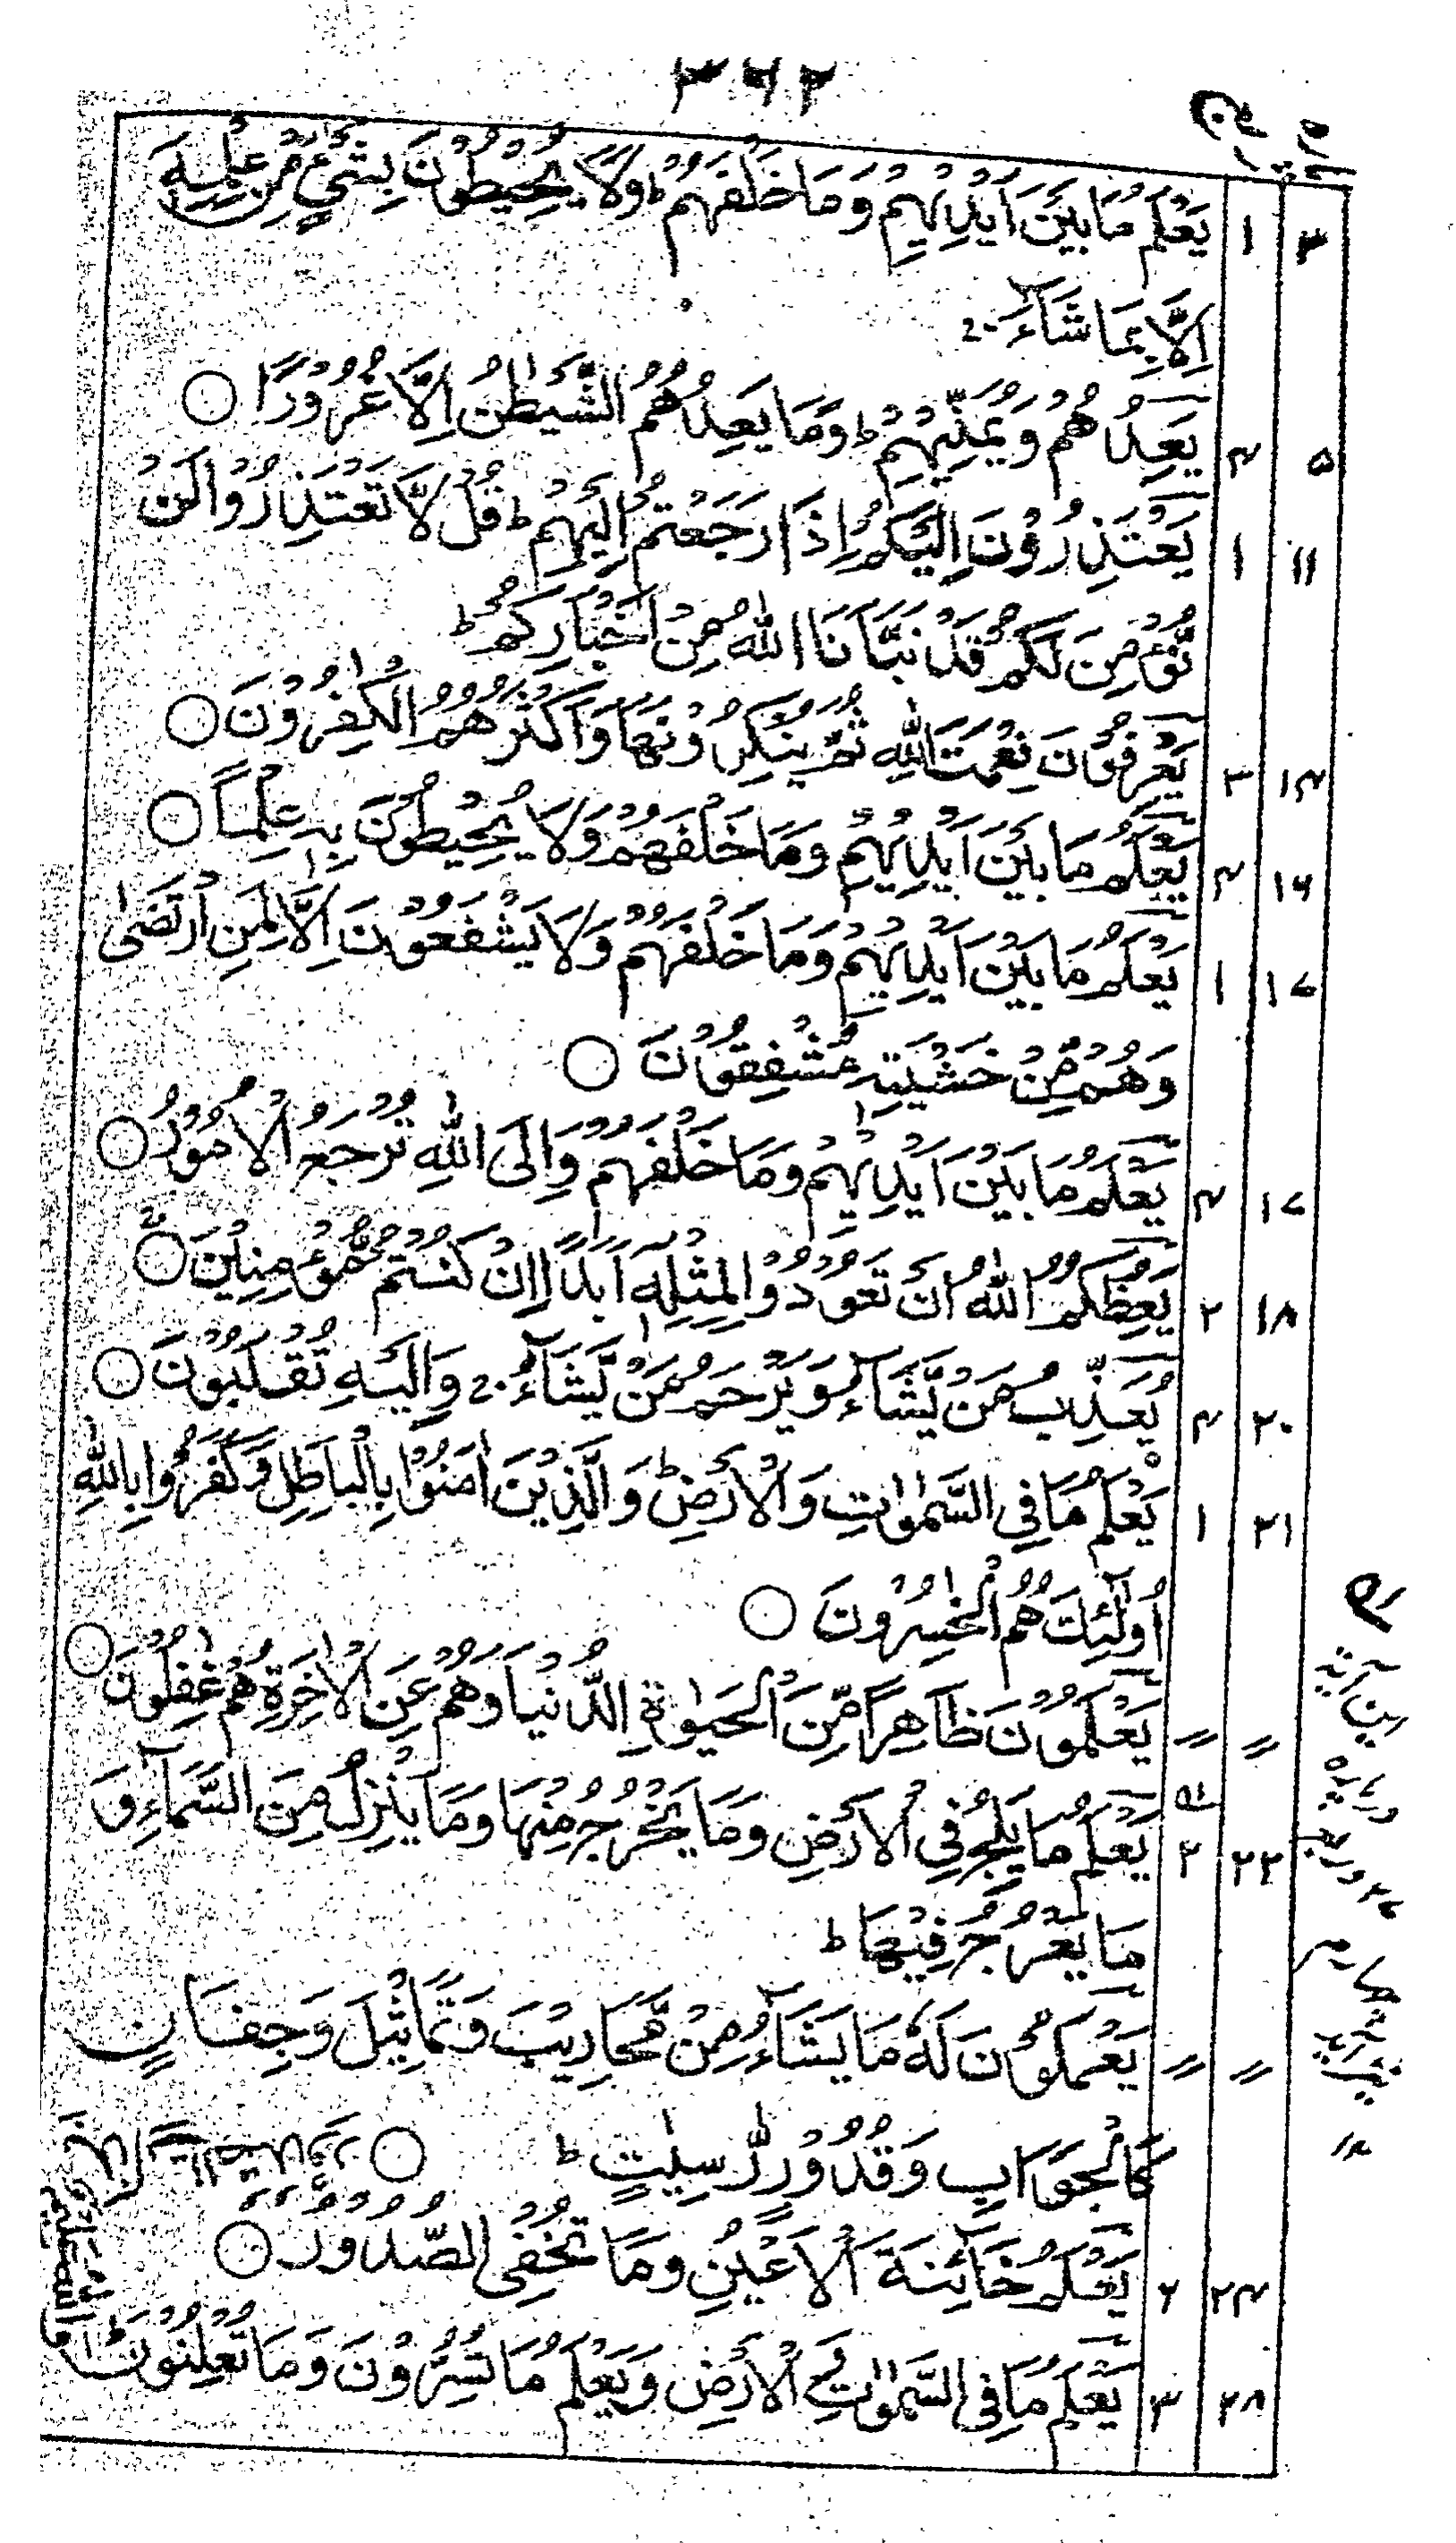 ۳۶۲
۳ ۱ يَعْلَمُ مَا بَيْنَ اَيْدِيْهِمْ وَمَا خَلْفَهُمْ ط وَلَا يُحِيْطُوْنَ بِشَيْءٍ مِّنْ عِلْمِهٖٓ
اِلَّا بِمَا شَآءَ ج
۵ ۴ يَعِدُهُمْ وَيُمَنِّيْهِمْ ط وَمَا يَعِدُهُمُ الشَّيْطٰنُ اِلَّا غُرُوْرًا ○
۱۱ ۱ يَعْتَذِرُوْنَ اِلَيْكُمْ اِذَا رَجَعْتُمْ اِلَيْهِمْ ط قُلْ لَّا تَعْتَذِرُوْا لَنْ
نُّؤْمِنَ لَكُمْ قَدْ نَبَّاَنَا اللّٰهُ مِنْ اَخْبَارِكُمْ ط
۱۴ ۳ يَعْرِفُوْنَ نِعْمَتَ اللّٰهِ ثُمَّ يُنْكِرُوْنَهَا وَاَكْثَرُهُمُ الْكٰفِرُوْنَ ○
۱۶ ۴ يَعْلَمُ مَا بَيْنَ اَيْدِيْهِمْ وَمَا خَلْفَهُمْ وَلَا يُحِيْطُوْنَ بِهٖ عِلْمًا ○
۱۷ ۱ يَعْلَمُ مَا بَيْنَ اَيْدِيْهِمْ وَمَا خَلْفَهُمْ وَلَا يَشْفَعُوْنَ اِلَّا لِمَنِ ارْتَضٰى
وَهُمْ مِّنْ خَشْيَتِهٖ مُشْفِقُوْنَ ○
۱۷ ۴ يَعْلَمُ مَا بَيْنَ اَيْدِيْهِمْ وَمَا خَلْفَهُمْ وَاِلَى اللّٰهِ تُرْجَعُ الْاُمُوْرُ ○
۱۸ ۲ يَعِظُكُمُ اللّٰهُ اَنْ تَعُوْدُوْا لِمِثْلِهٖٓ اَبَدًا اِنْ كُنْتُمْ مُّؤْمِنِيْنَ ○
۲۰ ۴ يُعَذِّبُ مَنْ يَّشَآءُ وَيَرْحَمُ مَنْ يَّشَآءُ ج وَاِلَيْهِ تُقْلَبُوْنَ ○
۲۱ ۱ يَعْلَمُ مَا فِي السَّمٰوٰتِ وَالْاَرْضِ ط وَالَّذِيْنَ اٰمَنُوْا بِالْبَاطِلِ وَكَفَرُوْا بِاللّٰهِ
اُولٰٓئِكَ هُمُ الْخٰسِرُوْنَ ○
〃 〃 يَعْلَمُوْنَ ظَاهِرًا مِّنَ الْحَيٰوةِ الدُّنْيَا وَهُمْ عَنِ الْاٰخِرَةِ هُمْ غٰفِلُوْنَ ○
۲۲ ۲ يَعْلَمُ مَا يَلِجُ فِي الْاَرْضِ وَمَا يَخْرُجُ مِنْهَا وَمَا يَنْزِلُ مِنَ السَّمَآءِ وَ
مَا يَعْرُجُ فِيْهَا ط
〃 〃 يَعْمَلُوْنَ لَهٗ مَا يَشَآءُ مِنْ مَّحَارِيْبَ وَتَمَاثِيْلَ وَجِفَانٍ
كَالْجَوَابِ وَقُدُوْرٍ رّٰسِيٰتٍ ط ○
۲۴ ۲ يَعْلَمُ خَآئِنَةَ الْاَعْيُنِ وَمَا تُخْفِي الصُّدُوْرُ ○
۲۸ ۳ يَعْلَمُ مَا فِي السَّمٰوٰتِ وَالْاَرْضِ وَيَعْلَمُ مَا تُسِرُّوْنَ وَمَا تُعْلِنُوْنَ ط